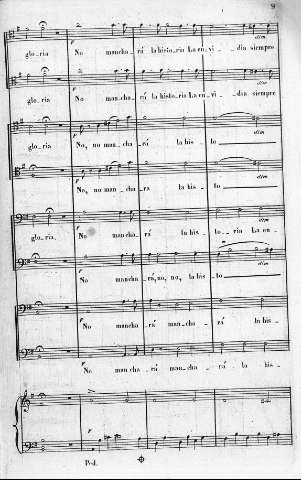 9
gloria No mancha_rá la historia La en_vi_dia siempre
dim
gloria No mancha_rá la historia La en_vi_dia siempre
dim
gloria No, no man_cha_rá la his_to
dim
No, no man_cha_ra la his_to
dim
gloria, No mancha_rá la his_to_ria La en_
No mancha_rá, no, no, la his_to
dim
No mancha_rá man_cha_rá la his_
No man cha_rá man_cha_rá la his_
Ped.